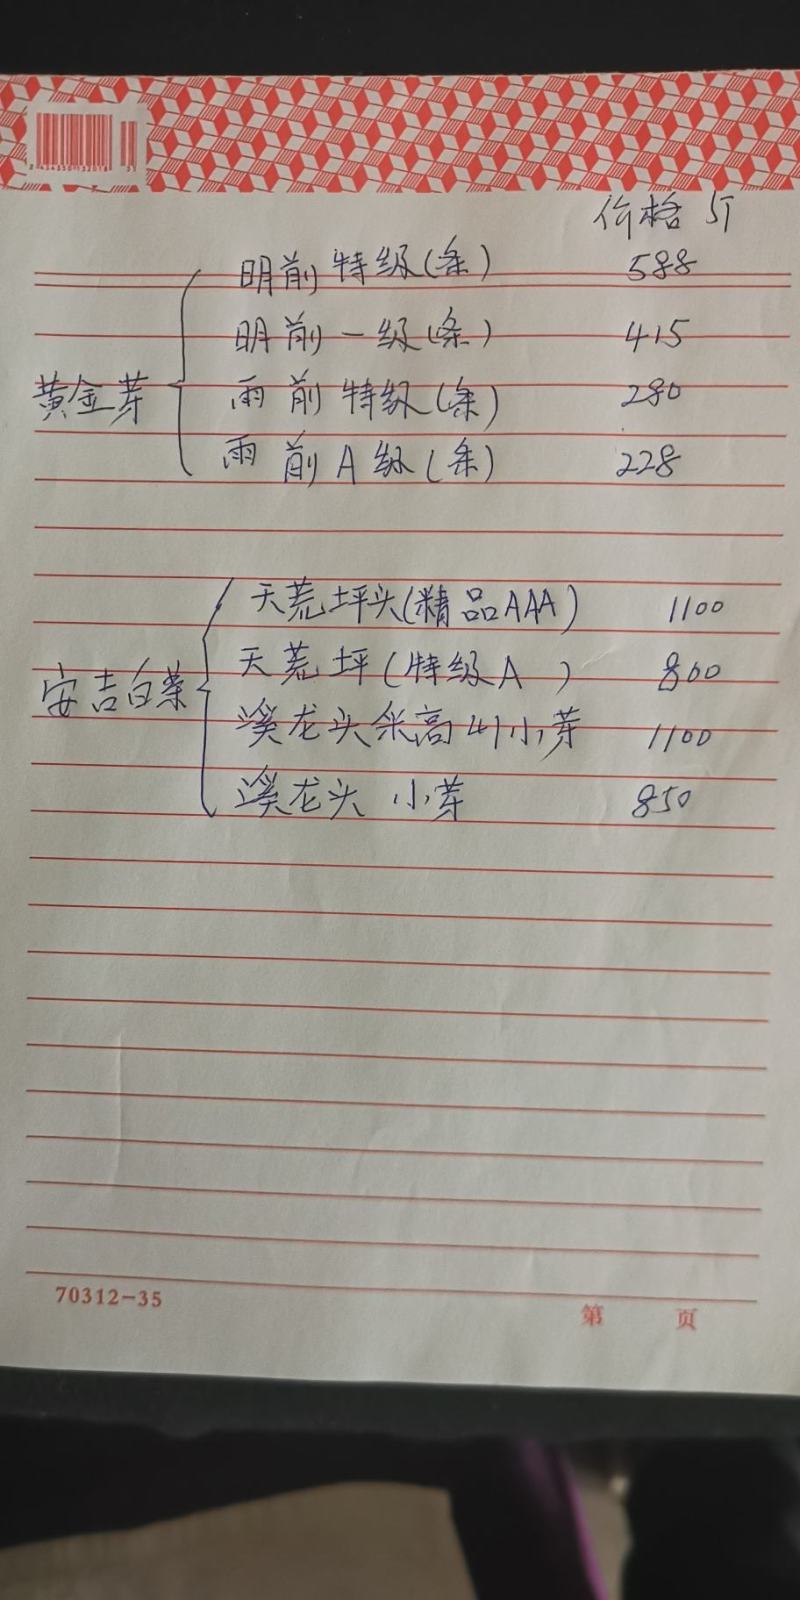 价格 5斤
明前特级(条) 588
明前一级(条) 415
黄金芽
雨前特级(条) 280
雨前A级(条) 228
天荒坪头(精品AAA) 1100
天荒坪(特级A ) 800
安吉白茶
溪龙头采高山小芽 1100
溪龙头 小芽 850
70312-35
第 页